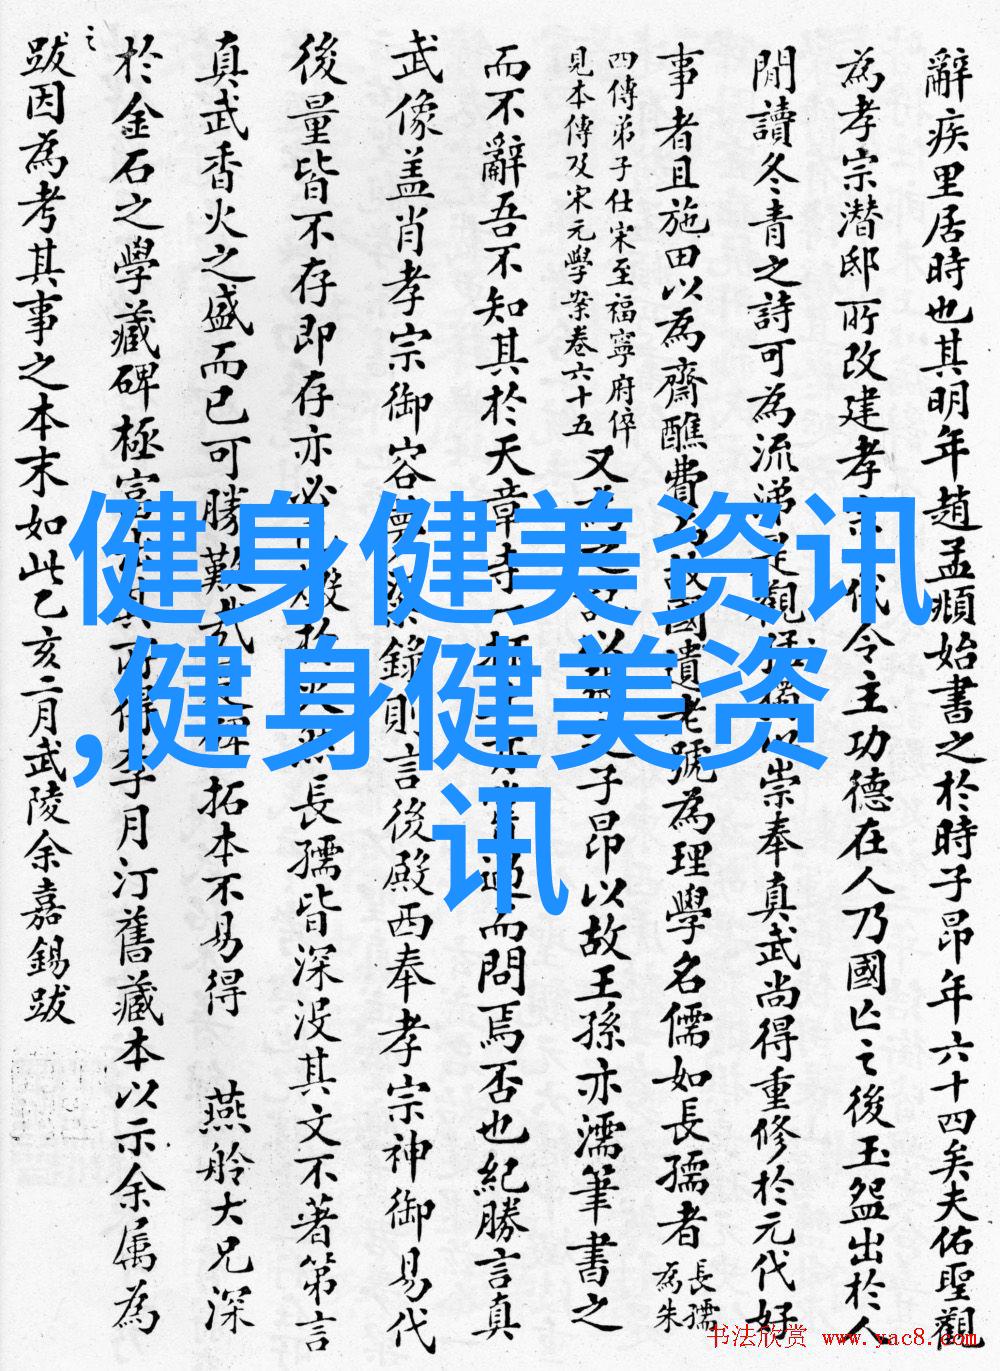 辭疾里居時也其明年趙孟頫始書之於時子昂年六十四矣夫佑聖觀
為孝宗潛邸所改建孝代令主功德在人乃國亡之後玉盌出於人
間讀冬青之詩可為流涕是觀猶以崇奉真武尚得重修於元代好
事者且施田以為齋醮費故國遺老號為理學名儒如長孺者
長孺為朱
四傳弟子仕宋至福寧府倅
見本傳及宋元學案卷六十五
又為之記以子昂以故王孫亦濡筆書之
而不辭吾不知其於天章寺過而問焉否也紀勝言真
武像蓋肖孝宗御容錄則言後殿西奉孝宗神御易代
後量皆不存即存亦必燬於長孺皆深沒其文不著第言
真武香火之盛而已可勝歎哉碑拓本不易得 燕舲大兄深
於金石之學藏碑極富所得李月汀舊藏本以示余属為
之
跋因為考其事之本末如此乙亥二月武陵余嘉錫跋
健身健美资讯
,健身健美资
讯
书法欣赏 www.yac8.com